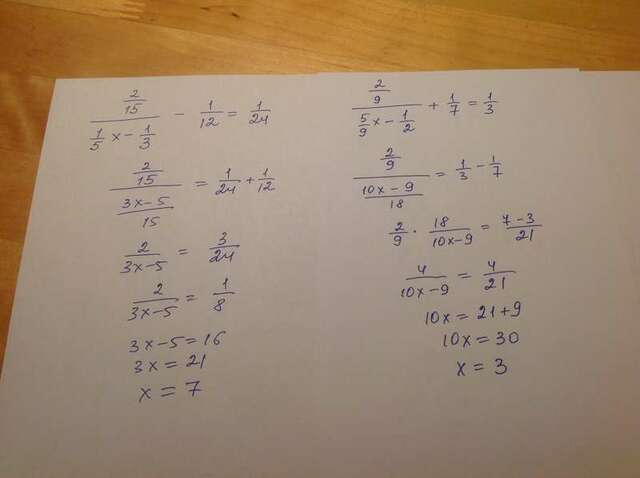 (2/15)/(1/5 x - 1/3) - 1/12 = 1/24
(2/15)/((3x-5)/15) = 1/24 + 1/12
2/(3x-5) = 3/24
2/(3x-5) = 1/8
3x-5 = 16
3x = 21
x = 7
(2/9)/(5/9 x - 1/2) + 1/7 = 1/3
(2/9)/((10x-9)/18) = 1/3 - 1/7
2/9 · 18/(10x-9) = (7-3)/21
4/(10x-9) = 4/21
10x = 21+9
10x = 30
x = 3